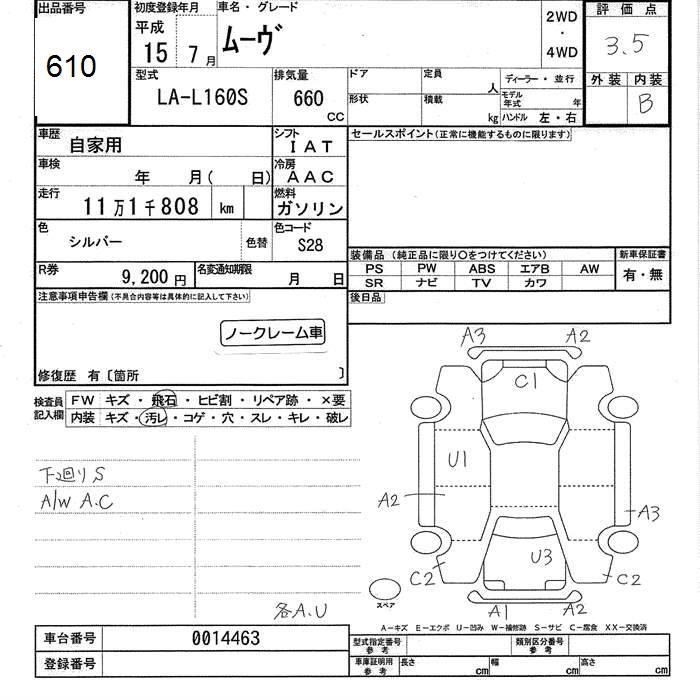 出品番号
610
初度登録年月
平成
15 7月
車名・グレード
ムーヴ
2WD
・
4WD
評価点
3.5
外装 内装
B
型式
LA-L160S
排気量
660
CC
ドア
定員
人
形状
積載
kg
ディーラー・並行
モデル年式 年
ハンドル 左・右
車歴
自家用
シフト
IAT
セールスポイント(正常に機能するものに限ります)
車検
年 月( 日)
冷房
AAC
走行
11万1千808 km
燃料
ガソリン
色
シルバー
色替
色コード
S28
装備品 (純正品に限り○をつけてください)
新車保証書
PS PW ABS エアB AW
SR ナビ TV カワ
有・無
R券
9,200円
名変通知期限
月 日
後日品
注意事項申告欄(不具合内容等は具体的に記入して下さい)
ノークレーム車
修復歴 有〔箇所 〕
検査員
記入欄
FW キズ・飛石・ヒビ割・リペア跡・×要
内装 キズ・汚レ・コゲ・穴・スレ・キレ・破レ
下廻りS
A/W A.C
各A.U
A3 A2
C1
U1
A2
A3
U3
C2
C2
A1 A2
スペア
A-キズ E-エクボ U-凹み W-補修跡 S-サビ C-腐食 XX-交換済
車台番号 0014463
登録番号
型式指定番号
参考
類別区分番号
参考
車庫証明用
参考
長さ cm 幅 cm 高さ cm